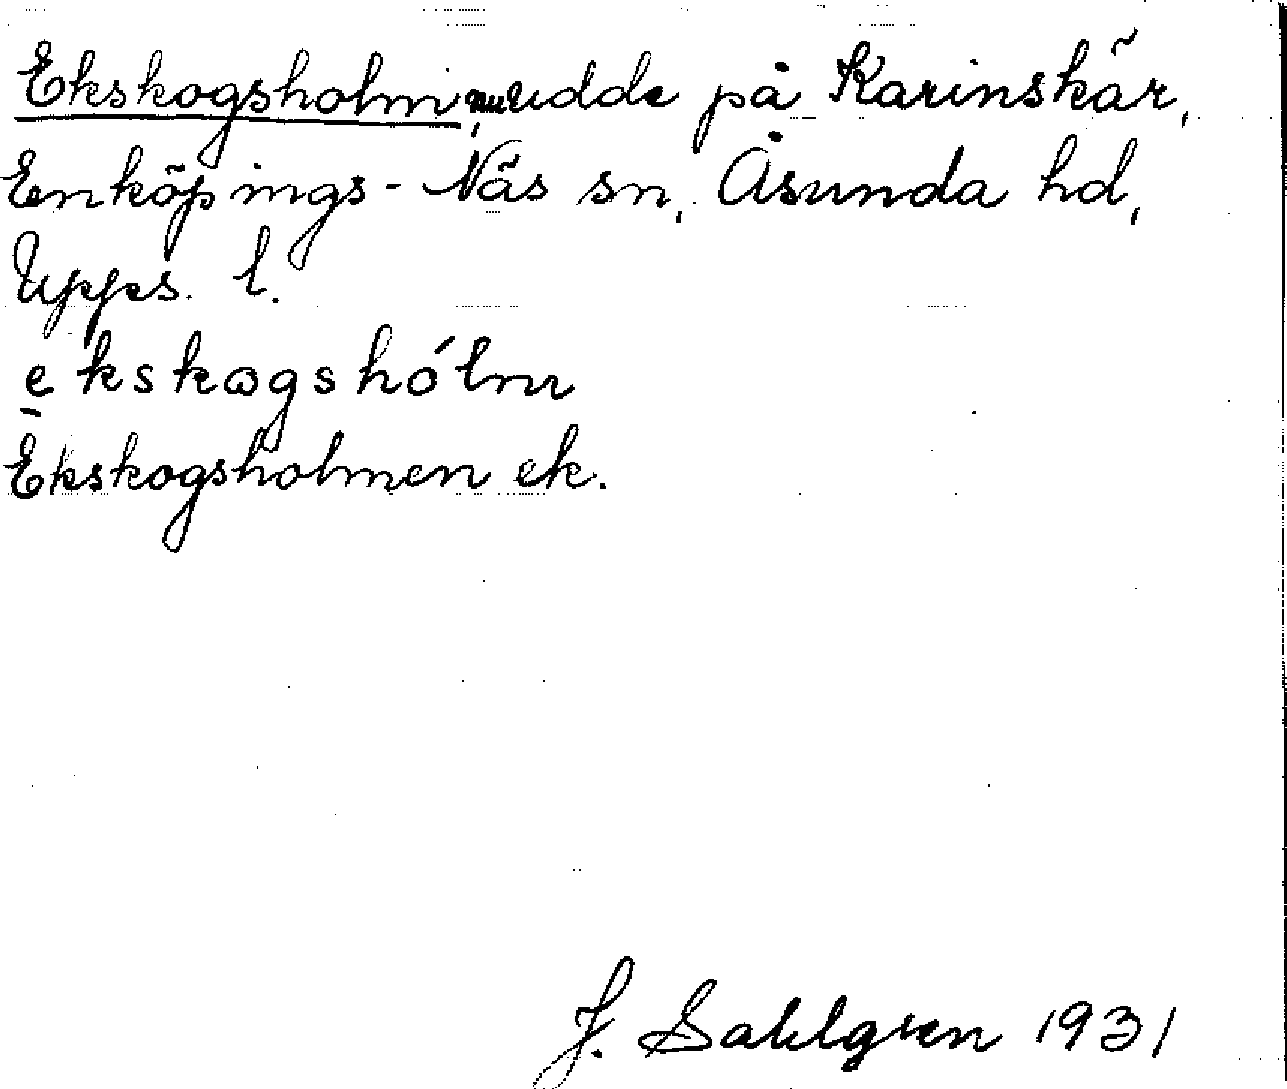 Ekskogsholm, nu udde på Karinskär,
Enköpings-Näs sn, Åsunda hd,
Upps. l.
e̱kskogshólm
Ekskogsholmen ek.
J. Sahlgren 1931